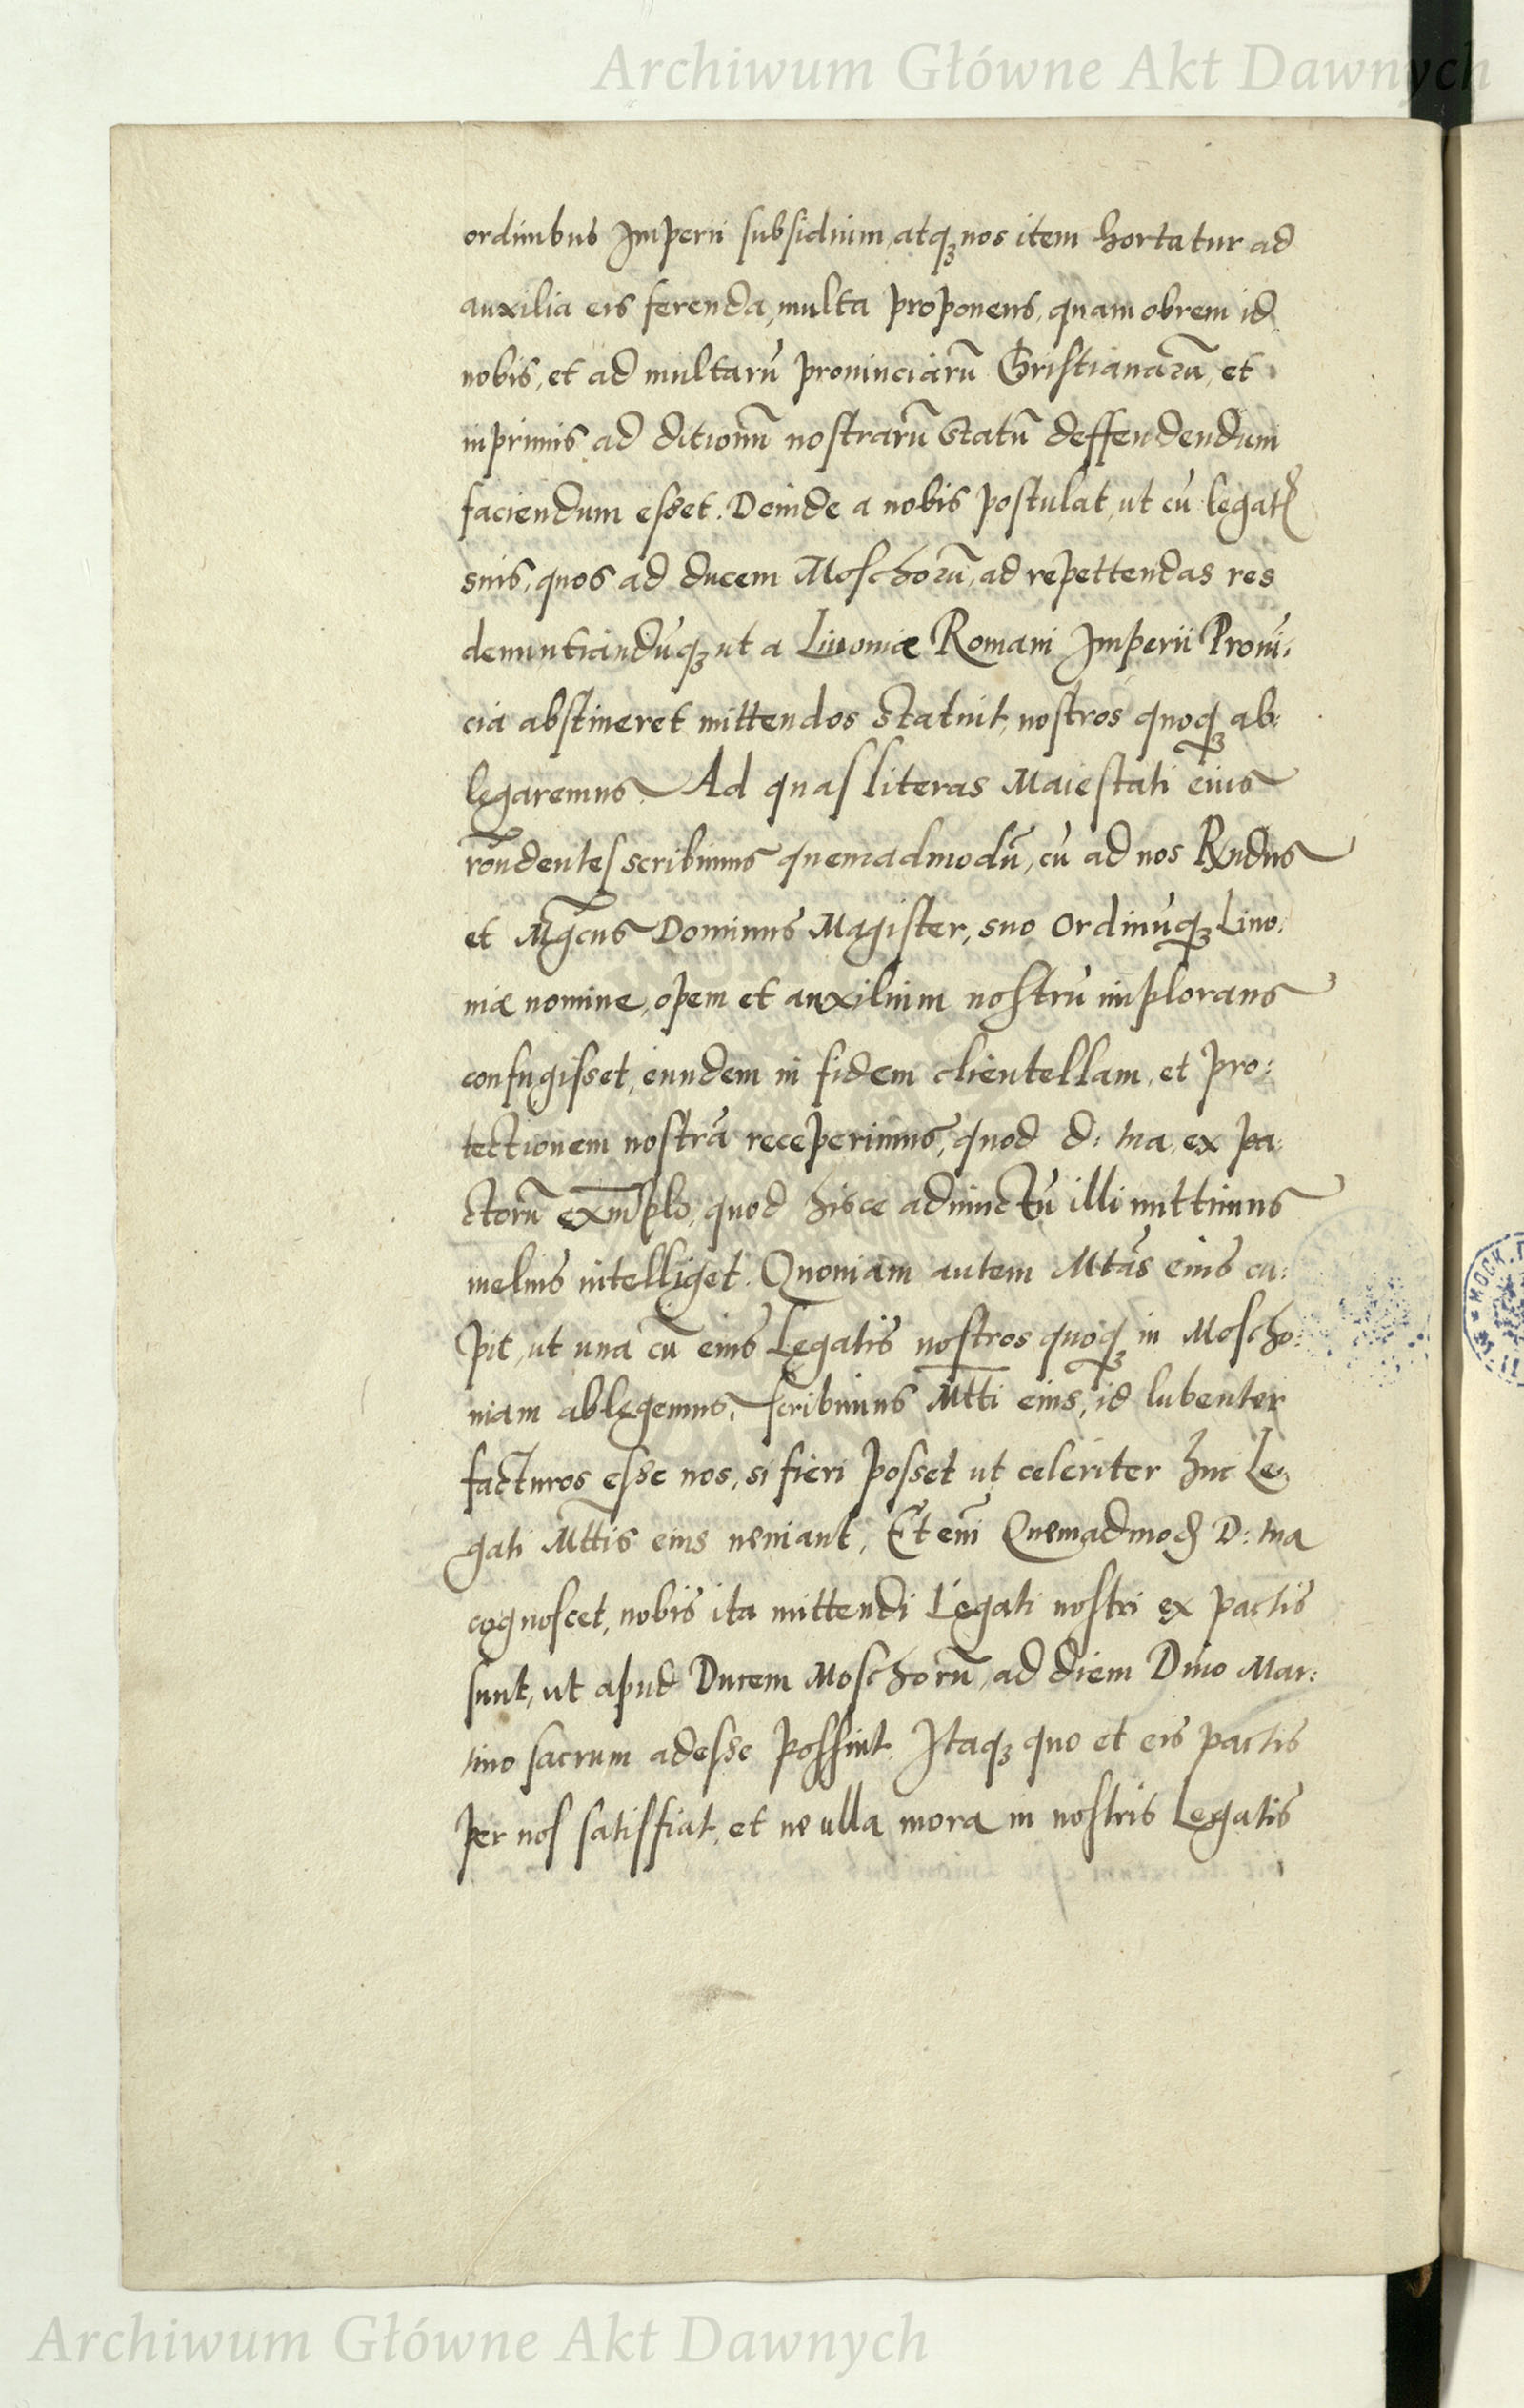 Archiwum Główne Akt Dawnych
ordinibus Imperii subsidium, atq₃ nos item hortatur ad
auxilia eis ferenda, multa proponens, quam obrem id
nobis, et ad multarū prouinciarū Christianarū, et
inprimis ad ditionū nostrarū statū deffendendum
faciendum esset. Deinde a nobis postulat, ut cū legatꝭ
suis, quos ad ducem Moschorū, ad repettendas res
denuntiandūq₃ ut a Liuoniæ Romani Imperii Proui:
cia abstineret mittendos statuit, nostros quoq₃ ab:
legaremus. Ad quas literas Maiestati eius
rōndentes scribimus quemadmodū, cū ad nos Rndus
et Mgcūs Dominus Magister, suo Ordinūq₃ Liuo:
niæ nomine, opem et auxilium nostrū implorans
confugisset, eundem in fidem clientellam, et pro:
tectionem nostrā receperimus, quod d: tua, ex pa:
ctorū exm̄plo, quod hisce adiunctū illi mittimus
melius intelliget. Quoniam autem Mtās eius cu:
pit, ut una cū eius Legatis nostros quoq₃ in Moscho:
uiam ablegemus, scribimus Mtti eius, id lubenter
facturos esse nos, si fieri posset ut celeriter huc Le:
gati Mttis eius ueniant. Et eni Quemadmod D: tua
cognoscet, nobis ita mittendi Legati nostri ex pactis
sunt, ut apud Ducem Moschorū, ad diem Diuo Mar:
tino sacrum adesse possint. Itaq₃ quo et eis pactis
per nos satisfiat, et ne ulla mora in nostris Legatis
Archiwum Główne Akt Dawnych